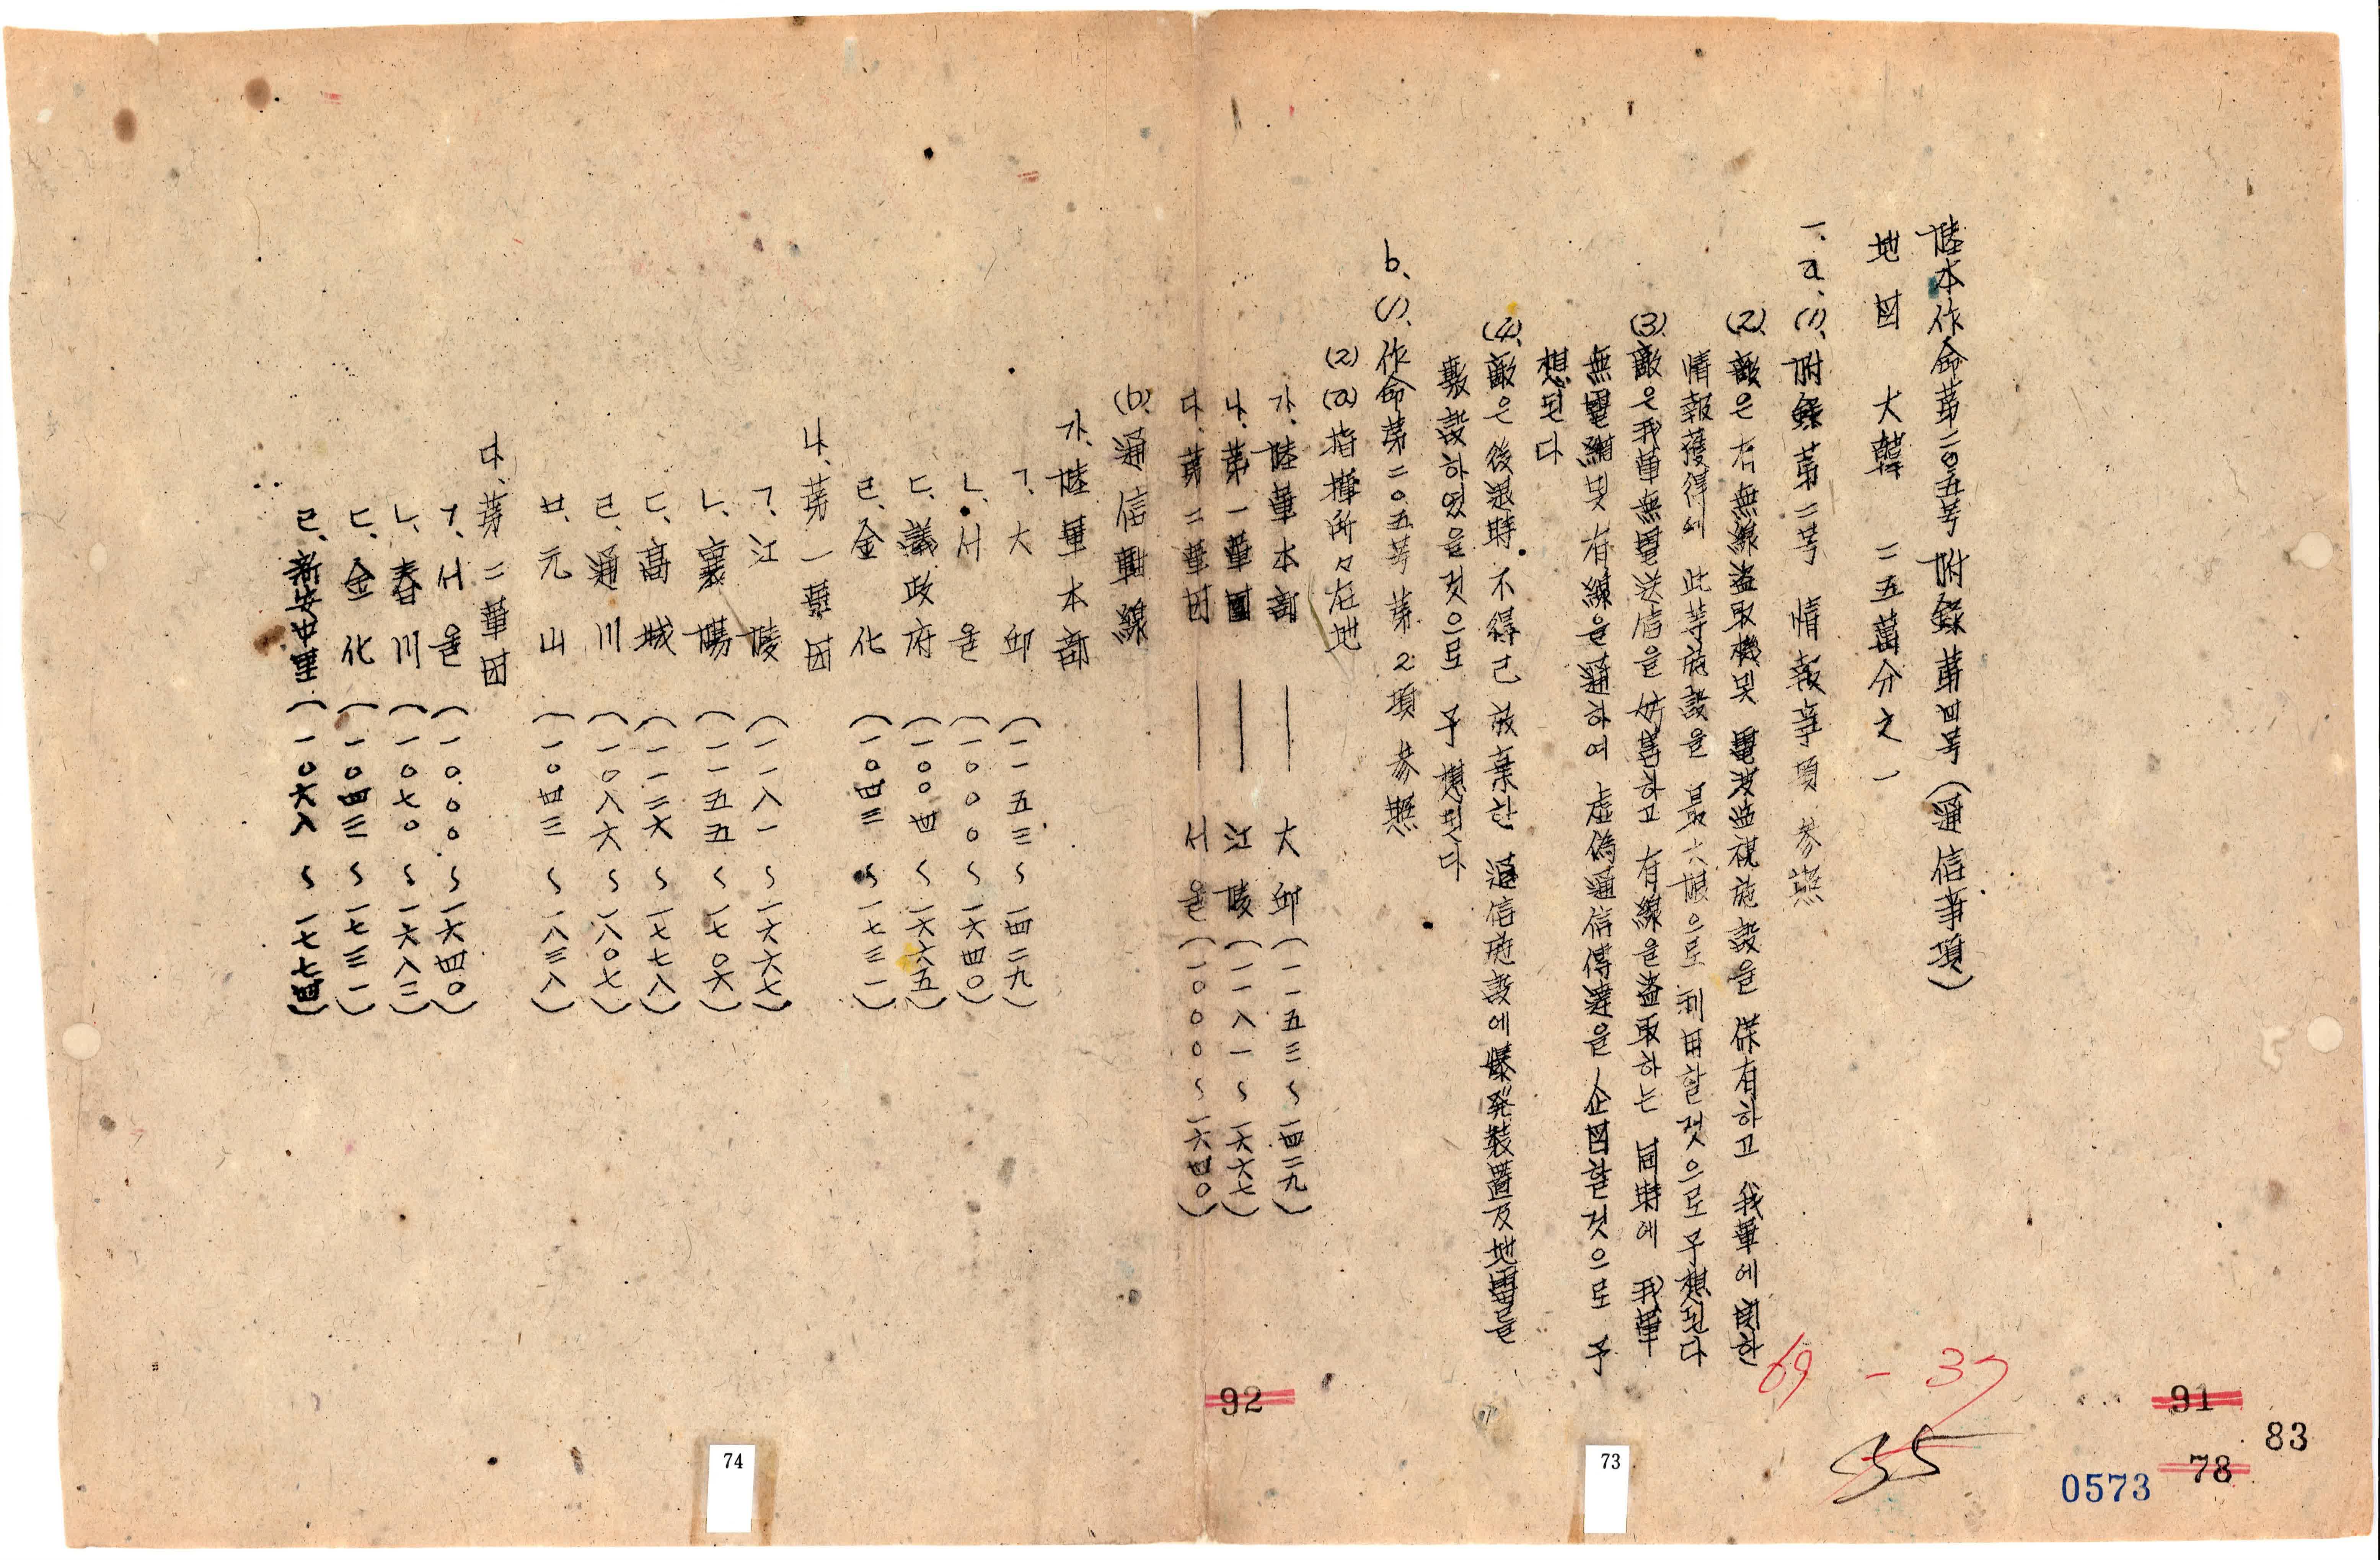 陸本作命第二〇五号 附錄第四号 (通信事項)
地図 大韓 二五萬分之一
一、a、(1)、附錄第二号 情報事項 参照
(2)、敵은 右無線盜取機및 電波監視施設을 保有하고 我軍에 関한
情報獲得에 此等施設을 最大限으로 利用할 것으로 予想된다
(3)、敵은 我軍無電送信을 妨害하고 有線을 盜取하는 同時에 我軍
無電網및 有線을 通하여 虛偽通信傳達을 企図할 것으로 予
想된다
(4)、敵은 後退時 不得已 放棄한 通信施設에 爆発裝置及地雷를
敷設하였을것으로 予想된다
b、(1)、作命第二〇五号 第2項 参照
(2) (a) 指揮所々在地
가、陸軍本部 ─── 大邱 (一一五三~一四二九)
나、第一軍團 ─── 江陵 (一一八一~一六六七)
다、第二軍団 ─── 서울 (一〇〇〇~一六四〇)
(b)、通信軸線
가、陸軍本部
ㄱ、大邱 (一一五三~一四二九)
ㄴ、서울 (一〇〇〇~一六四〇)
ㄷ、議政府 (一〇〇四~一六六五)
ㄹ、金化 (一〇四三~一七三一)
나、第一軍団
ㄱ、江陵 (一一八一~一六六七)
ㄴ、襄陽 (一一五五~一七〇六)
ㄷ、高城 (一一二六~一七七八)
ㄹ、通川 (一〇八六~一八〇七)
ㅁ、元山 (一〇四三~一八三八)
다、第二軍団
ㄱ、서울 (一〇〇〇~一六四〇)
ㄴ、春川 (一〇七〇~一六八二)
ㄷ、金化 (一〇四三~一七三一)
ㄹ、新安中里 (一〇六八~一七七四)
69-37
35
92
91
83
78
0573
74
73